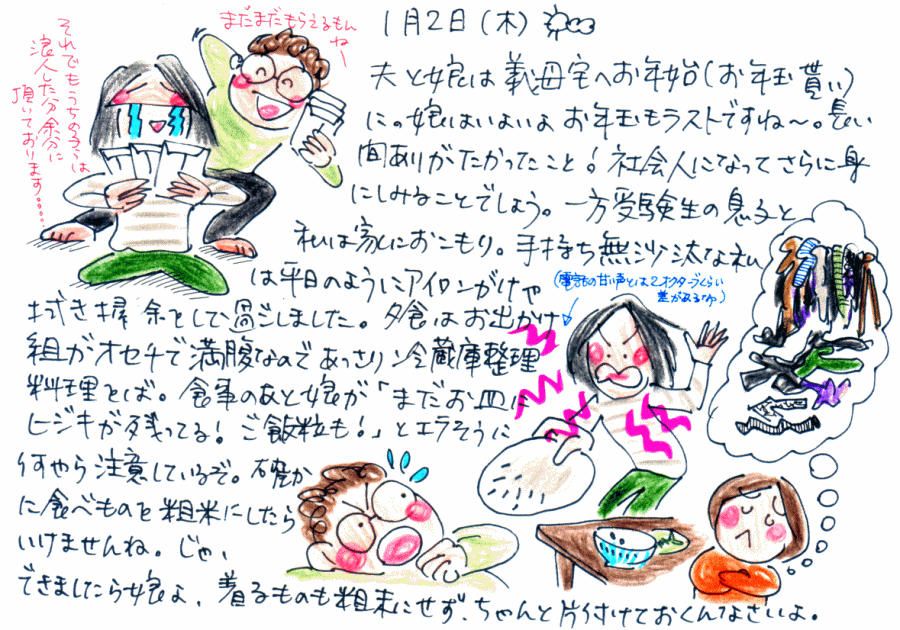 まだまだもらえるもんねー
それでもうちの子は
浪人した分余分に
頂いております・・・・
1月2日(木)
夫と娘は義母宅へお年始(お年玉貰い)
に。娘はいよいよお年玉もラストですね〜。長い
間ありがたかったこと!社会人になってさらに身
にしみることでしょう。一方受験生の息子と
私は家におこもり。手持ち無沙汰な私
は平日のようにアイロンがけや
(電話の甘い声とは2オクターブくらい
差があるでゆ)
拭き掃除をして過ごしました。夕食はお出かけ
組がオセチで満腹なのであっさり冷蔵庫整理
料理とば。食事のあと娘が「まだお皿に
ヒジキが残ってる!ご飯粒も!」とエラそうに
何やら注意しているぞ。確か
に食べものを粗末にしたら
いけませんね。じゃ、
できましたら娘よ、着るものも粗末にせず、ちゃんと片付けておくんなさいよ。